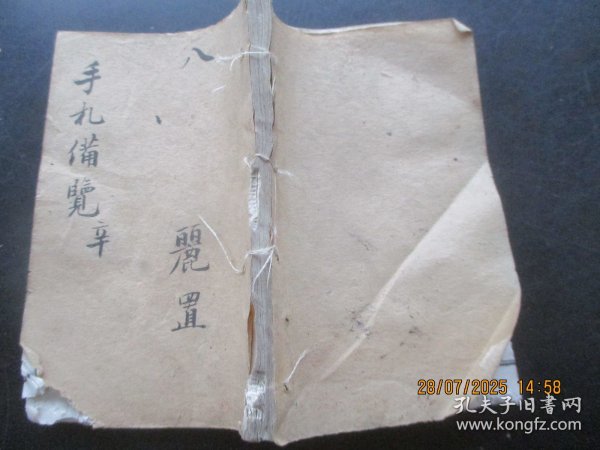 八
手札備覽辛
麗置
28/07/2025 14:58
孔夫子旧書网
www.kongfz.com